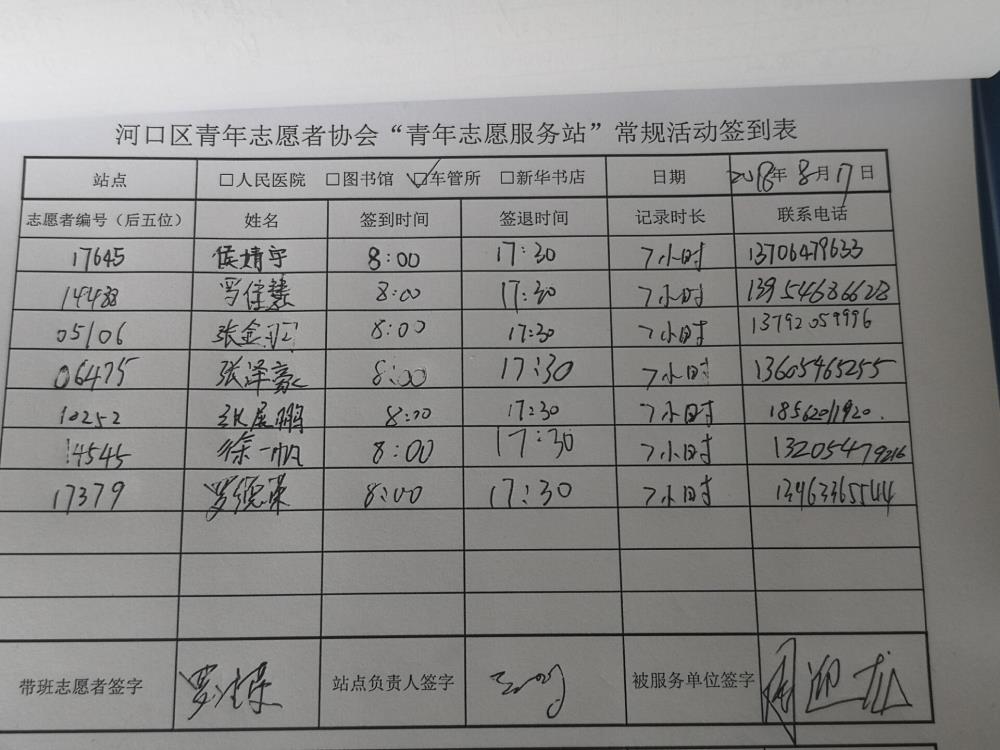 河口区青年志愿者协会“青年志愿服务站”常规活动签到表
站点 □人民医院 □图书馆 ☑车管所 □新华书店 日期 2018年8月17日
志愿者编号（后五位） 姓名 签到时间 签退时间 记录时长 联系电话
17645 侯婧宇 8:00 17:30 7小时 13706479633
14488 冯佳慧 8:00 17:30 7小时 13954686628
05106 张金 8:00 17:30 7小时 13792059996
06475 张泽豪 8:00 17:30 7小时 13605465255
10252 张展鹏 8:00 17:30 7小时 18562011920.
14545 徐一帆 8:00 17:30 7小时 13205479216
17379 8:00 17:30 7小时 13963365544
带班志愿者签字 站点负责人签字 被服务单位签字